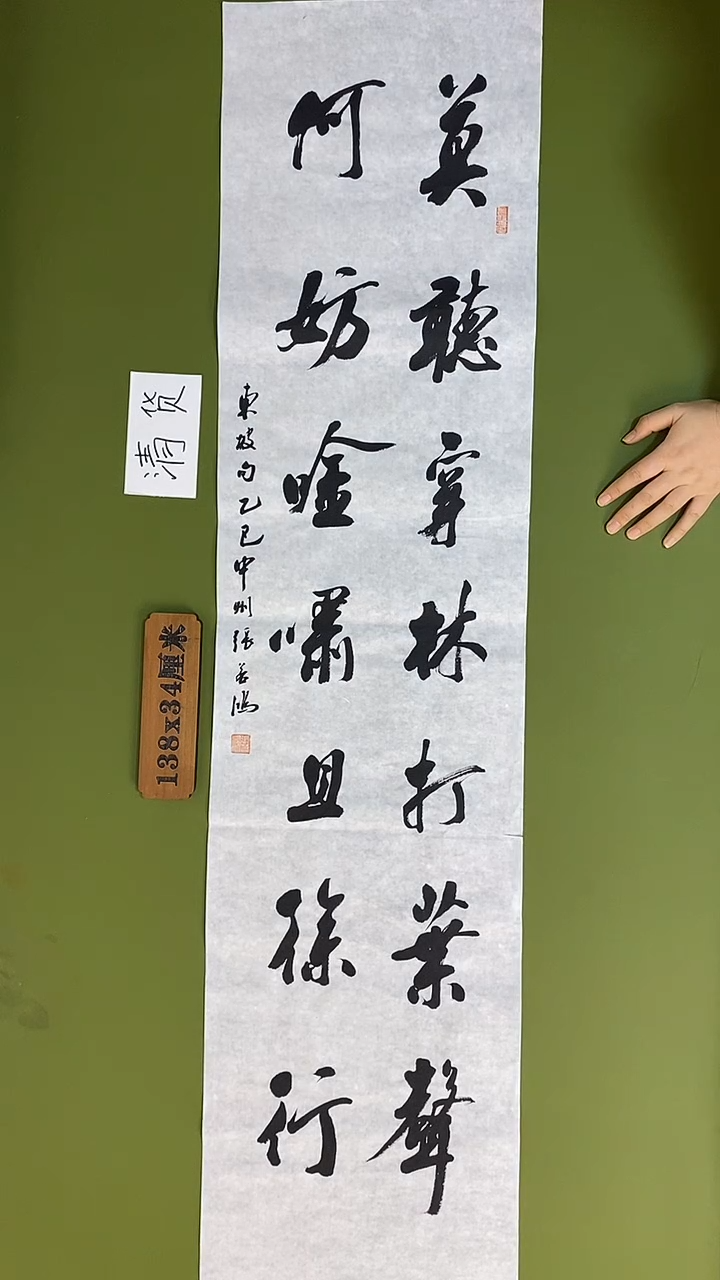 莫聽穿林打葉聲
何妨唫嘯且徐行
東坡句乙巳中州張鴻
清货
138x34厘米